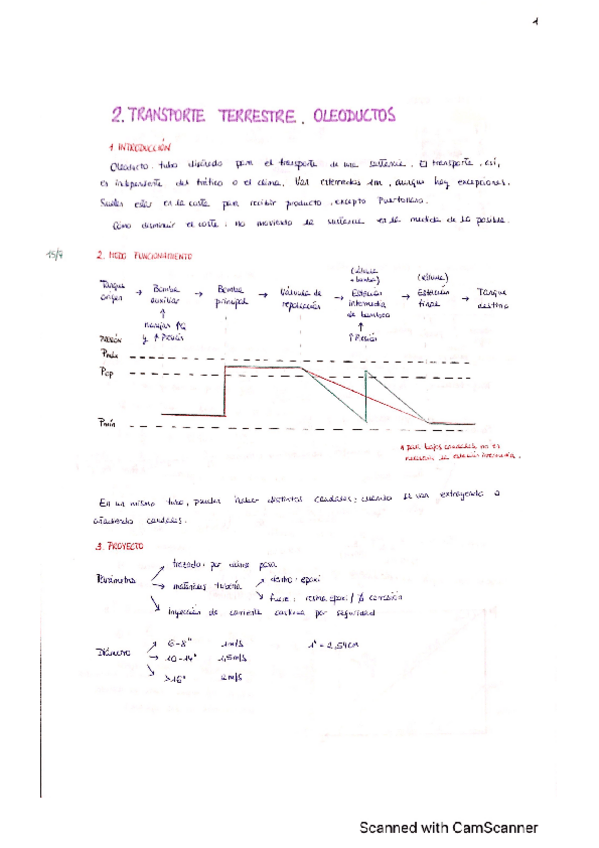 1
2. TRANSPORTE TERRESTRE. OLEODUCTOS
1. INTRODUCCIÓN
Oleoducto: tubo diseñado para el transporte de una sustancia. El transporte, así,
es independiente del tráfico o el clima. Van enterrados 1m, aunque hay excepciones.
Suelen estar en la costa para recibir producto, excepto Puertollano.
Cómo disminuir el coste: no moviendo la sustancia en la medida de lo posible.
15/9
2. MODO FUNCIONAMIENTO
Tanque origen → Bomba auxiliar → Bomba principal → Válvula de regulación → Estación intermedia de bombeo → Estación final → Tanque destino
(válvula + bomba)
(válvula)
manejar ↑Q y ↑ Presión
↑ Presión
PRESIÓN
Pmáx
Pop
Pmín
* para bajos caudales no es
necesaria la estación intermedia.
En un mismo tubo, pueden haber distintos caudales: cuando se van extrayendo o
añadiendo caudales.
3. PROYECTO
trazado: por dónde pasa
Parámetros → materiales tubería → dentro: epoxi
fuera: resina epoxi / corrosión
inyección de corriente continua por seguridad
6-8" 1m/s 1" = 2,54cm
Diámetro → 10-14" 1,5m/s
>16" 2m/s
Scanned with CamScanner